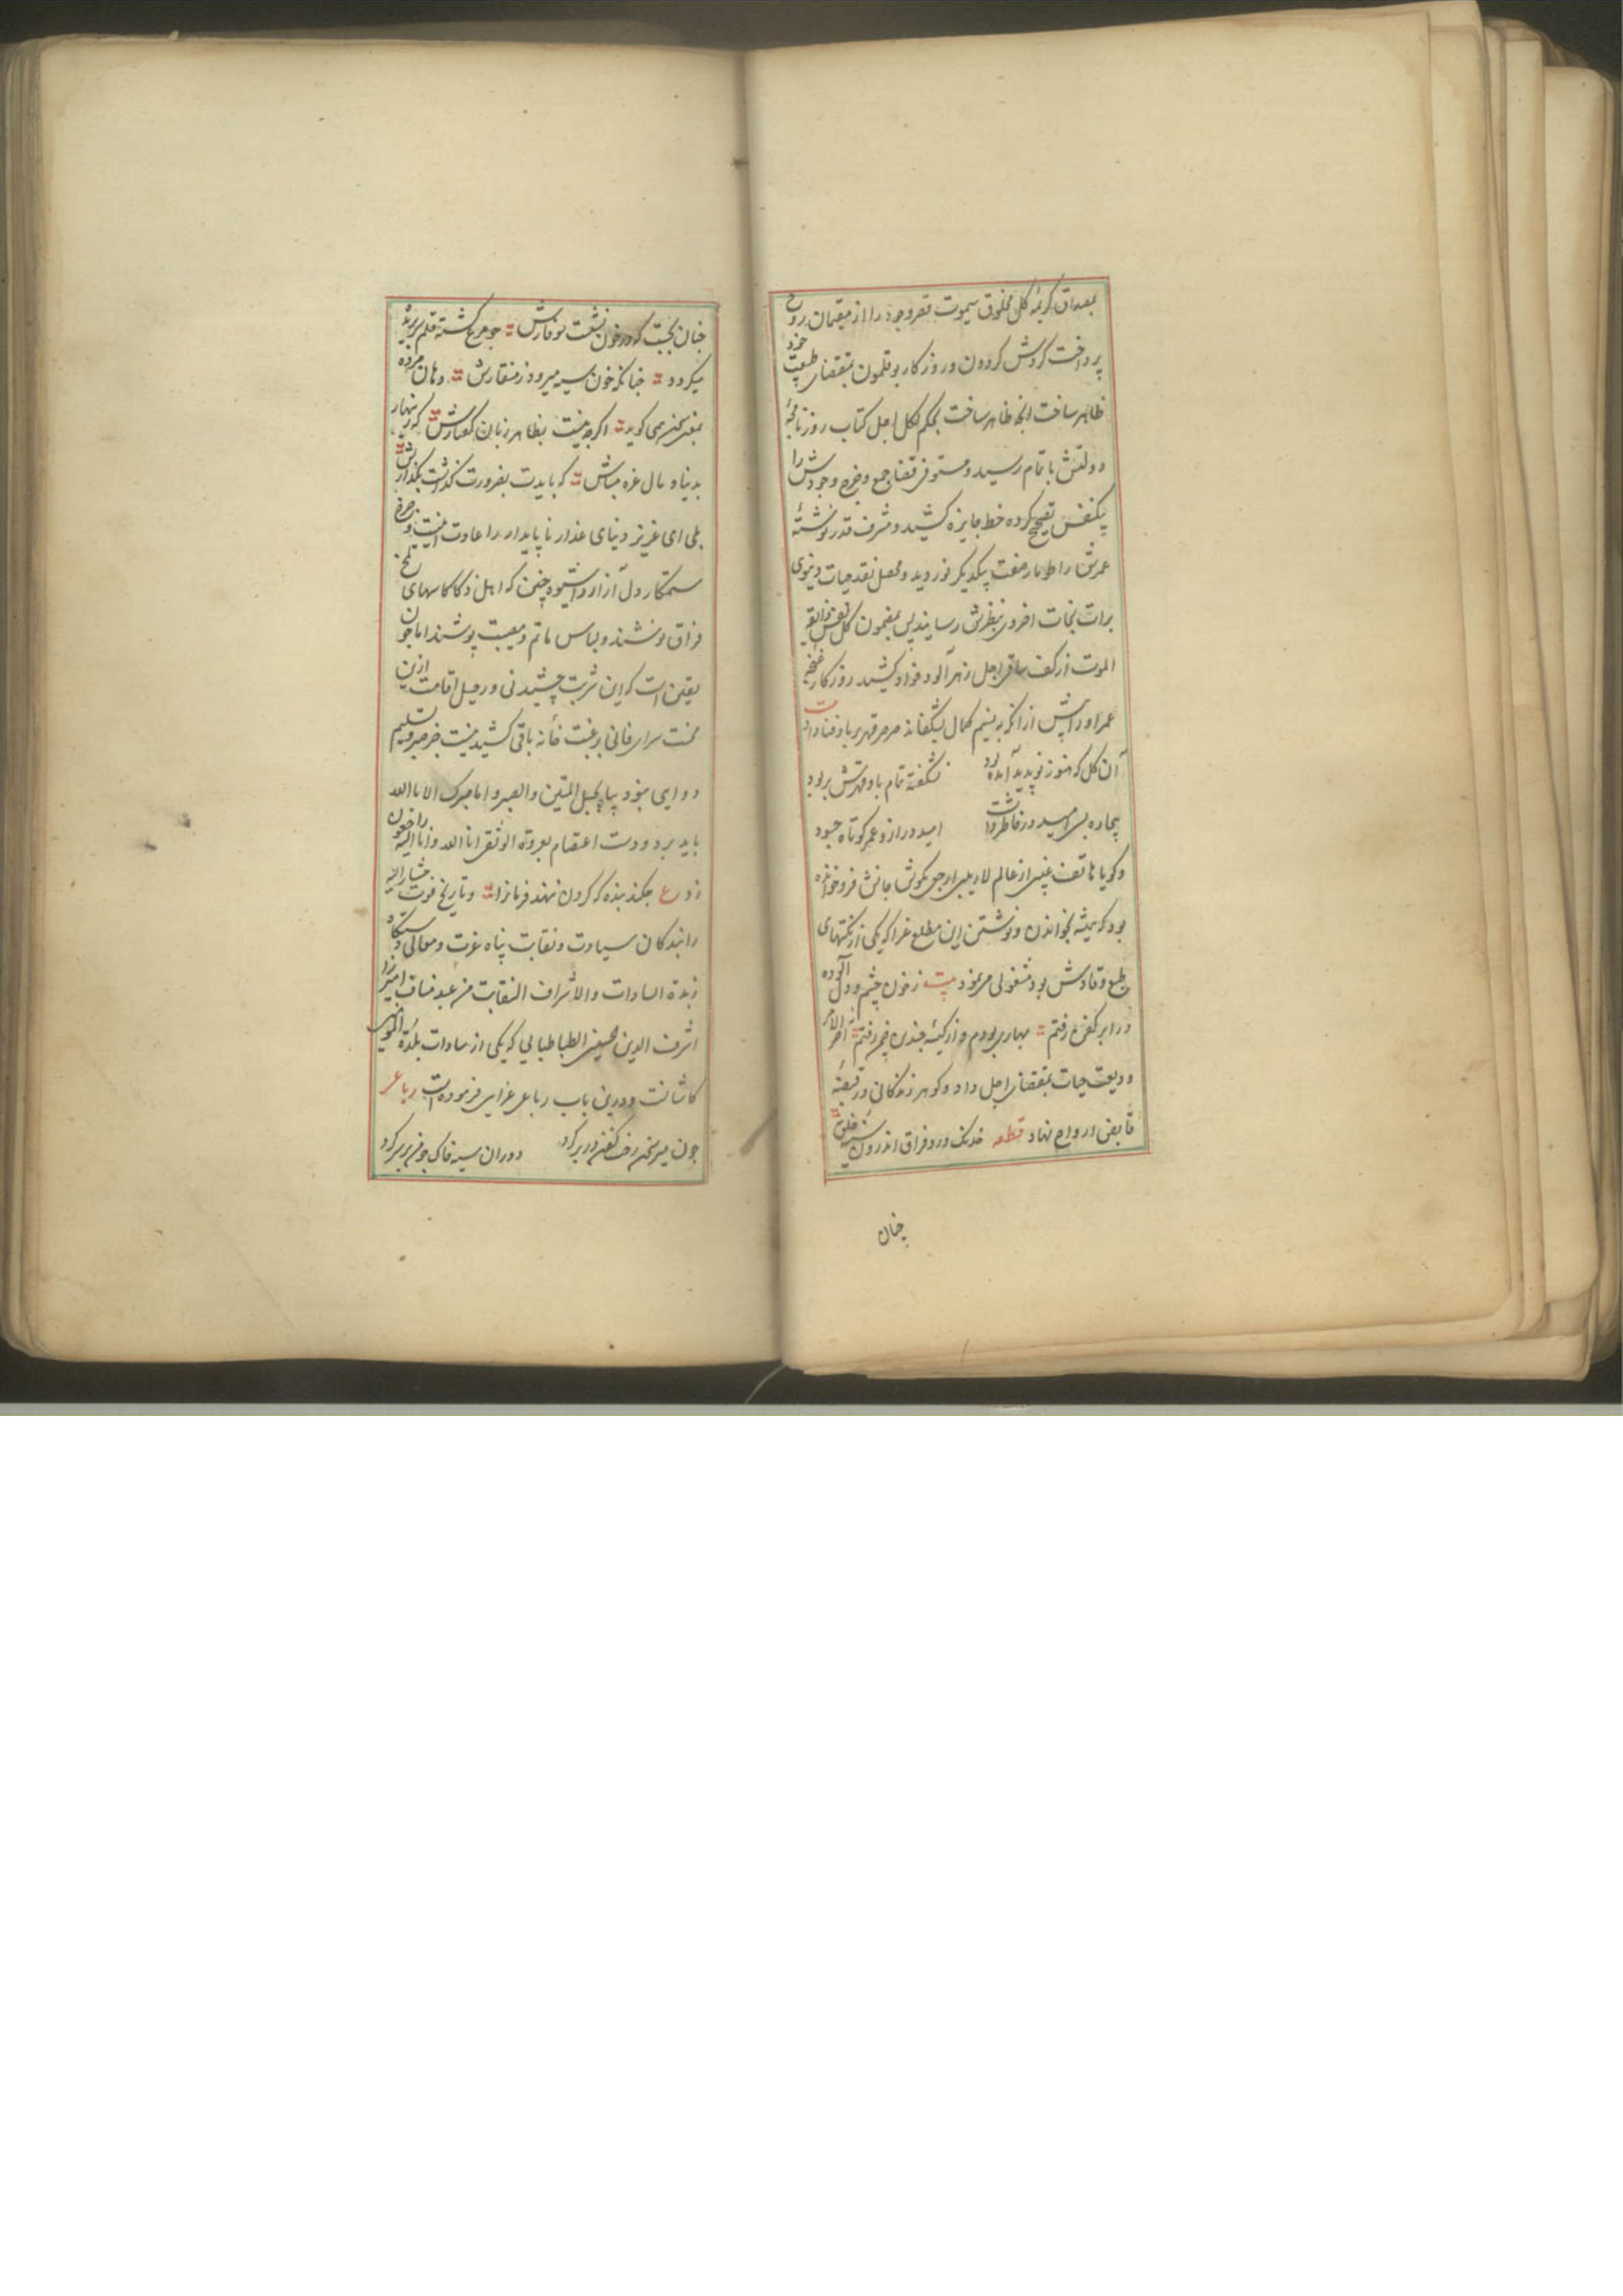 بمصداق کریمهٔ کل مخلوق سیموت قصر وجود را از مقیمان روح
پرداخت کردش کردون و روزکار بوقلمون بمقتضای طبیعت خود
ظاهر ساخت انچه ظاهر ساخت بحکم لکل اجل کتاب روزنامچهٔ
دولتش باتمام رسید و مستوفی قضا جمع و خرج وجودش را
تصحیح کرده خط جایزه کشید و مشرف قدر نوشتهٔ
عمرش را طومار صفت بیکدیکر نوردید و محصل نقد حیات دنیوی
برات نجات اخروی بنظرش رسانید پس بمضمون کل نفس ذائقه
الموت از کف ساقی اجل زهرآلود کشید روزکار غنچه
عمر او را پیش از انکه به نسیم کمال بشکفاند صرصر قهر بر باد فنا داد بیت
آن کل که هنوز نو بدید آمده بود نشکفته تمام باد قهرش بربود
بیچاره بسی امید در خاطر داشت امید دراز و عمر کوتاه چه سود
و کویا هاتف غیبی از عالم لاریبی ارجعی بکوش جانش فرو خوانده
بود که همیشه بخواندن و نوشتن این مطلع غرا که یکی از نکتهای
طبع وقادش بود مشغولی می نمود بیت ز خون چشم و دل آلوده
در ابر کفن رفتم بهاری بودم و از کینهٔ رفتم آخر الامر
ودیعت حیات بمقتضای اجل داد و کوهر زندکانی در قبضهٔ
قابض ارواح نهاد قطعه خدنک درد فراق اندرون سینه خلق
چنان
چنان نشست که در خون نشست سوفارش چو مرغ کشته قلم سر بریده
میکردد چنانکه خون سیه میرود ز منقارش دهان مرده
بمعنی سخن همی کوید اکرچه نیست بظاهر زبان کفتارش که زینهار
بدنیا و مال غره مباش که بایدت بضرورت کذاشت یکبارش
بلی ای عزیز دنیای غدار ناپایدار را عادت اینست و چرخ
ستمکار دل آزار را شیوه چنین که اهل ذکا کاسهای تلخ
فراق نوشند و لباس ماتم و مصیبت پوشند اما چون
یقین است که این شربت چشیدنی و رحیل اقامت ازین
محنت سرای فانی رغبت خانه باقی کشیدنیست جز صبر و تسلیم
دوایی نبود پناه بحبل المتین واصبر و ما صبرک الا بالله
باید برد و دست اعتصام بعروة الوثقی انا لله و انا الیه راجعون
زد ع چکند بنده که کردن ننهد فرمانرا و تاریخ فوت مشارالیه
را بندکان سیادت و نقابت پناه عزت و معالی دستکاه
زبدة السادات والاشراف النقابت من عبد مناف امیرزا
اشرف الدین الطباطبایی که یکی از سادات بلدة المؤمنین
کاشانست و درین باب رباعی غرایی فرموده است رباعی
چون میر سخن رفت کفن در بر کرد دوران سیه خاک چو من بر سر کرد